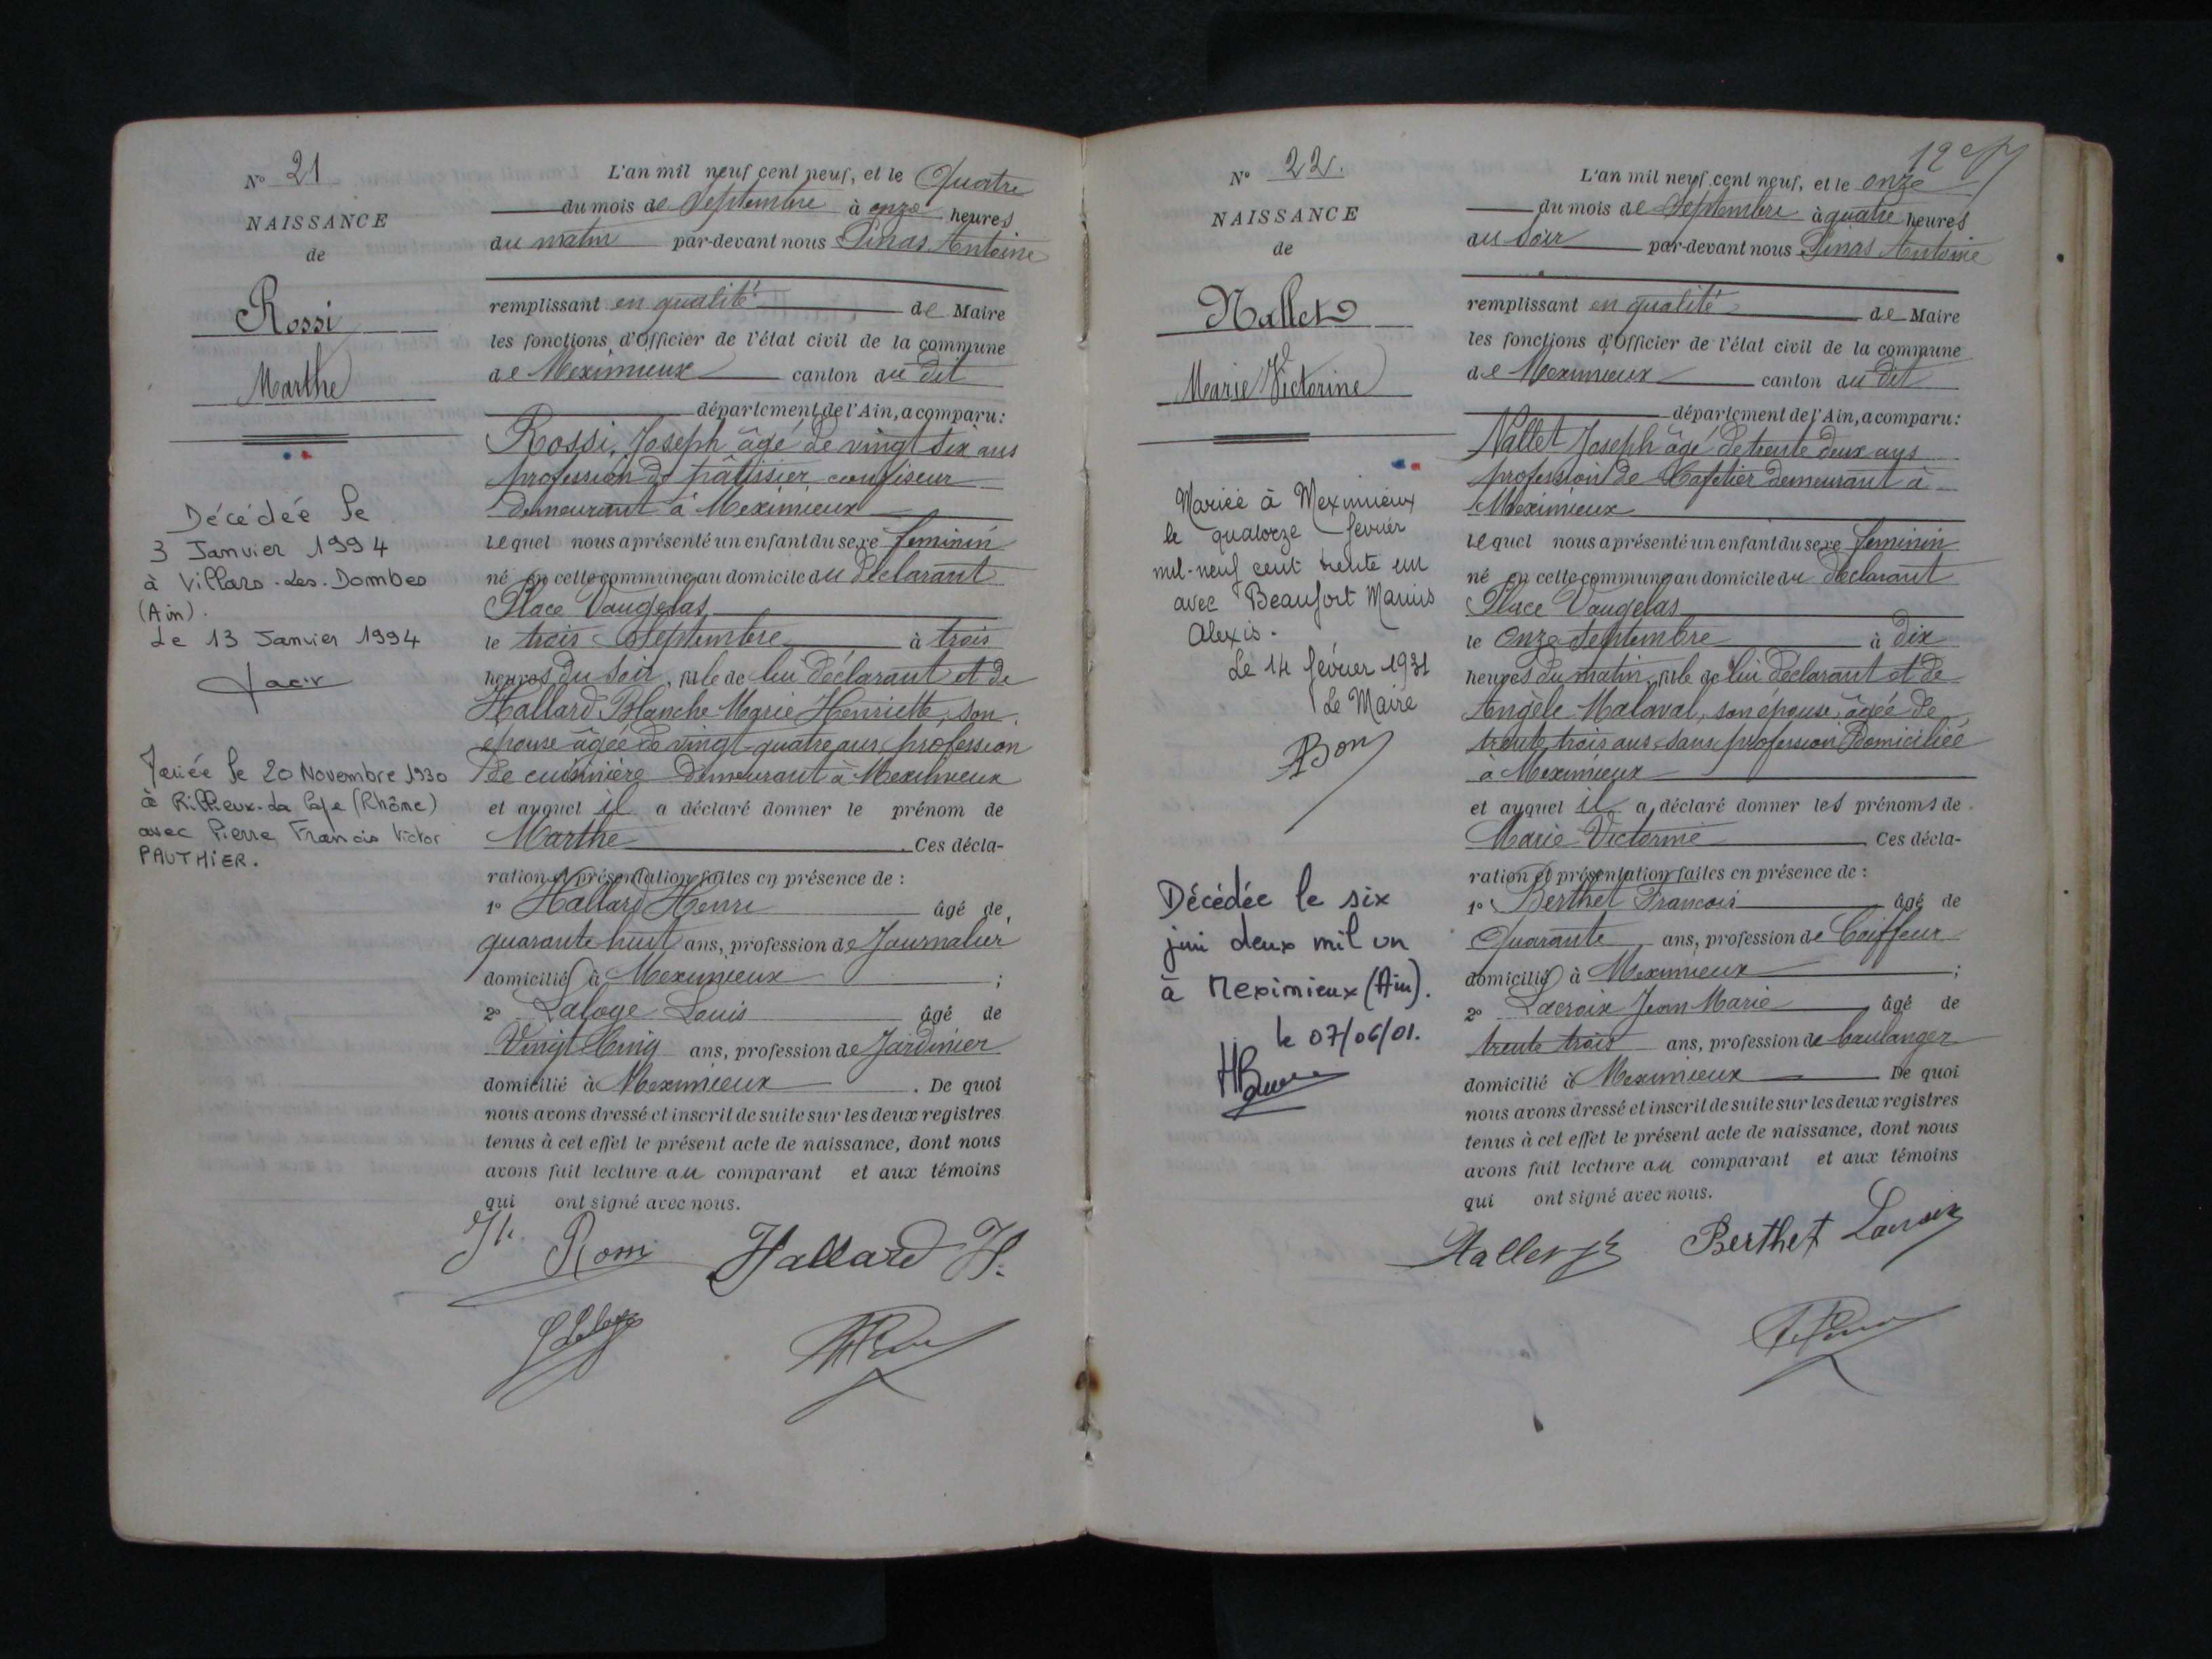 N° 21
NAISSANCE
de
Rossi
Marthe
Décédée le
3 Janvier 1994
à Villars-les-Dombes
(Ain).
Le 13 Janvier 1994
Mariée le 20 Novembre 1930
à Rillieux-La Pape (Rhône)
avec Pierre Francis Victor
PAUTHIER.
L'an mil neuf cent neuf, et le Quatre
du mois de Septembre à onze heures
du matin par-devant nous Pinas Antoine
remplissant en qualité de Maire
les fonctions d'Officier de l'état civil de la commune
de Meximieux canton du dit
département de l'Ain, a comparu:
Rossi, Joseph âgé de vingt six ans
profession de pâtissier confiseur
demeurant à Meximieux
lequel nous a présenté un enfant du sexe féminin
né en cette commune au domicile du déclarant
Place Vaugelas
le trois Septembre à trois
heures du soir, fille de lui déclarant et de
Hallard Blanche Marie Henriette, son
épouse âgée de vingt-quatre ans, profession
de cuisinière demeurant à Meximieux
et auquel il a déclaré donner le prénom de
Marthe Ces décla-
ration et présentation faites en présence de :
1° Hallard Henri âgé de
quarante huit ans, profession de Journalier
domicilié à Meximieux ;
2° Laloge Louis âgé de
Vingt Cinq ans, profession de Jardinier
domicilié à Meximieux . De quoi
nous avons dressé et inscrit de suite sur les deux registres
tenus à cet effet le présent acte de naissance, dont nous
avons fait lecture au comparant et aux témoins
qui ont signé avec nous.
Jh Rossi Hallard H.
N° 22.
NAISSANCE
de
Nallet
Marie Victorine
Mariée à Meximieux
le quatorze février
mil-neuf cent trente un
avec Beaufort Marius
Alexis.
Le 14 février 1931
Le Maire
Décédée le six
juin deux mil un
à Meximieux (Ain).
le 07/06/01.
12
L'an mil neuf cent neuf, et le onze
du mois de Septembre à quatre heures
du soir par-devant nous Pinas Antoine
remplissant en qualité de Maire
les fonctions d'Officier de l'état civil de la commune
de Meximieux canton du dit
département de l'Ain, a comparu:
Nallet Joseph âgé de trente deux ans
profession de Cafetier demeurant à
Meximieux
lequel nous a présenté un enfant du sexe féminin
né en cette commune au domicile du déclarant
Place Vaugelas
le Onze Septembre à dix
heures du matin, fille de lui déclarant et de
Angèle Malaval, son épouse, âgée de
trente trois ans, sans profession domiciliée
à Meximieux
et auquel il a déclaré donner les prénoms de
Marie Victorine Ces décla-
ration et présentation faites en présence de :
1° Berthet François âgé de
Quarante ans, profession de Coiffeur
domicilié à Meximieux ;
2° Lacroix Jean Marie âgé de
trente trois ans, profession de boulanger
domicilié à Meximieux De quoi
nous avons dressé et inscrit de suite sur les deux registres
tenus à cet effet le présent acte de naissance, dont nous
avons fait lecture au comparant et aux témoins
qui ont signé avec nous.
Nallet Jh Berthet Lacroix